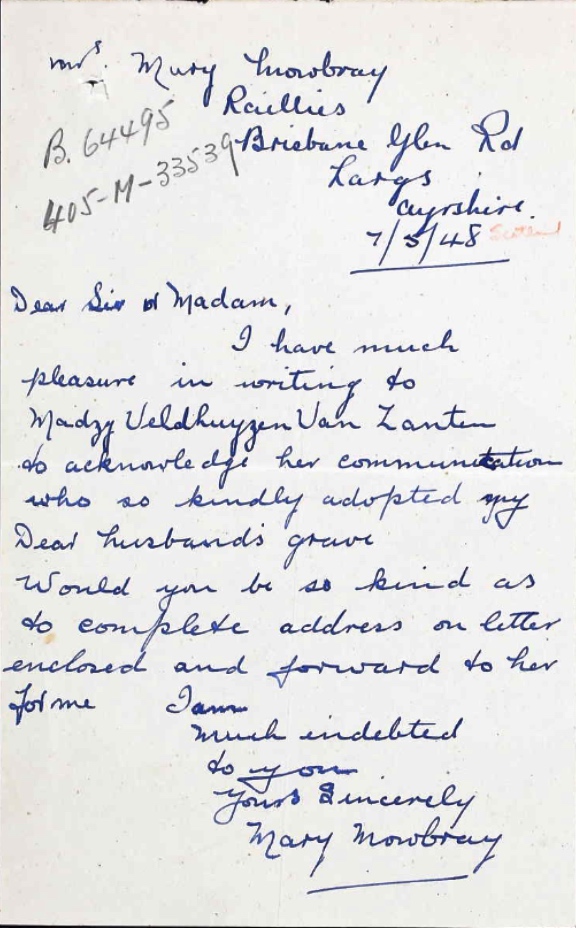 Mrs. Mary Mowbray
Raillies
B. 64495
Brisbane Glen Rd
405-M-33539
Largs
Ayrshire.
7/5/48 Scotland
Dear Sir or Madam,
I have much
pleasure in writing to
Madzy Veldhuyzen Van Zanten
to acknowledge her communication
who so kindly adopted my
Dear husbands grave
Would you be so kind as
to complete address on letter
enclosed and forward to her
for me I am
Much indebted
to you
Yours Sincerely
Mary Mowbray